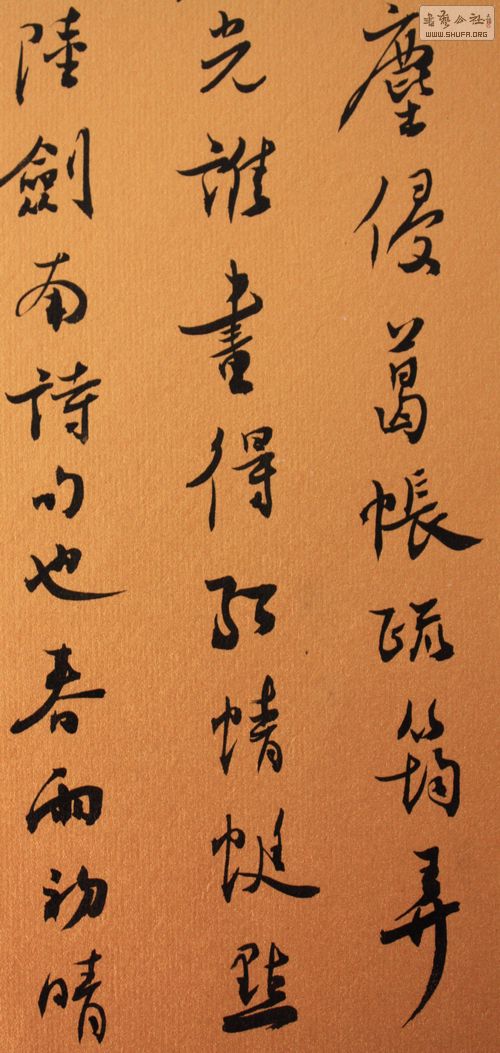 塵侵葛帳疏筠弄
光誰畫得紅蜻蜓點
陸劍南詩句也春雨初晴
書藝公社
WWW.SHUFA.ORG